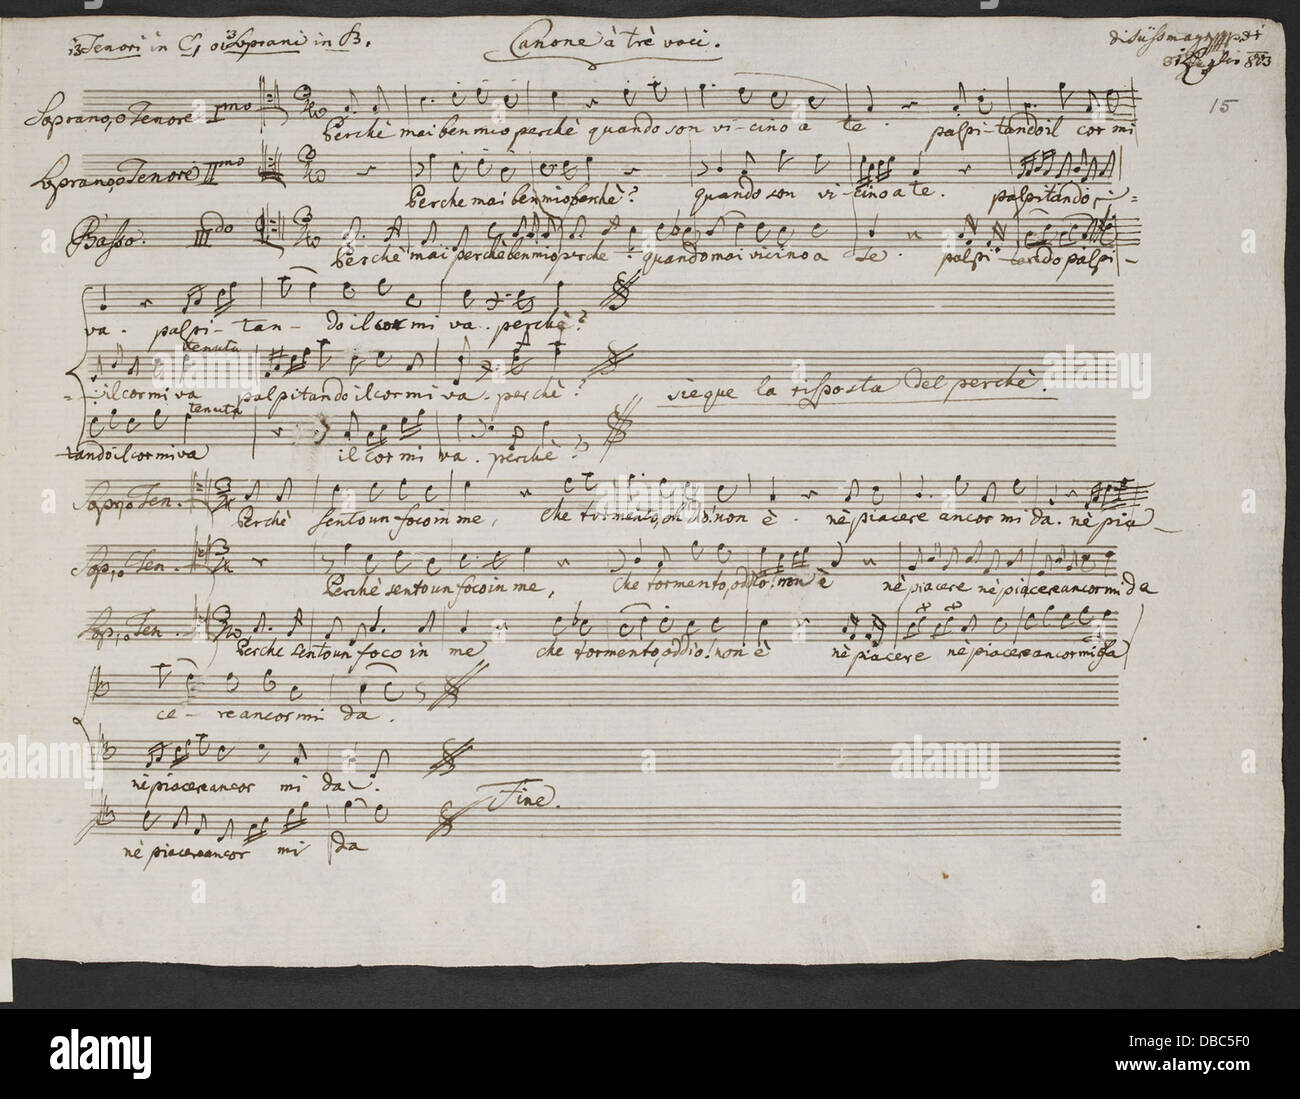 3 Tenori in C, o 3 Soprani in B.
Canone à trè voci.
di
31 Luglio 1803
15
Soprano, o Tenore Imo
Perchè mai ben mio perchè quando son vi-cino a te. palpi-tando il cor mi
Soprano, o Tenore IImo
Perche mai ben mio perchè? quando son vi-cino a te. palpitando,
Basso. IIIdo
Perchè mai perchè ben mio perche? quando mai vicino a te. palpi-tando palpi-
va. palpi-tan-do il cor mi va. perchè?
tenuta
il cor mi va palpitando il cor mi va. perchè?
sieque la risposta del perchè.
tenuta
tando il cor mi va il cor mi va. perchè?
Sop, o Ten.
Perchè sento un foco in me, che tormento, oh Dio! non è. nè piacere ancor mi da. nè pia-
Sop, o Ten.
Perchè sento un foco in me, che tormento, oddio! non è nè piacere nè piacere ancor mi da
Sop, o Ten.
Perche sento un foco in me che tormento, oddio! non è nè piacere nè piacere ancor mi da
ce-re ancor mi da.
nè piacere ancor mi da.
Fine.
nè piacere ancor mi da
alamy
Image ID: DBC5F0
www.alamy.com